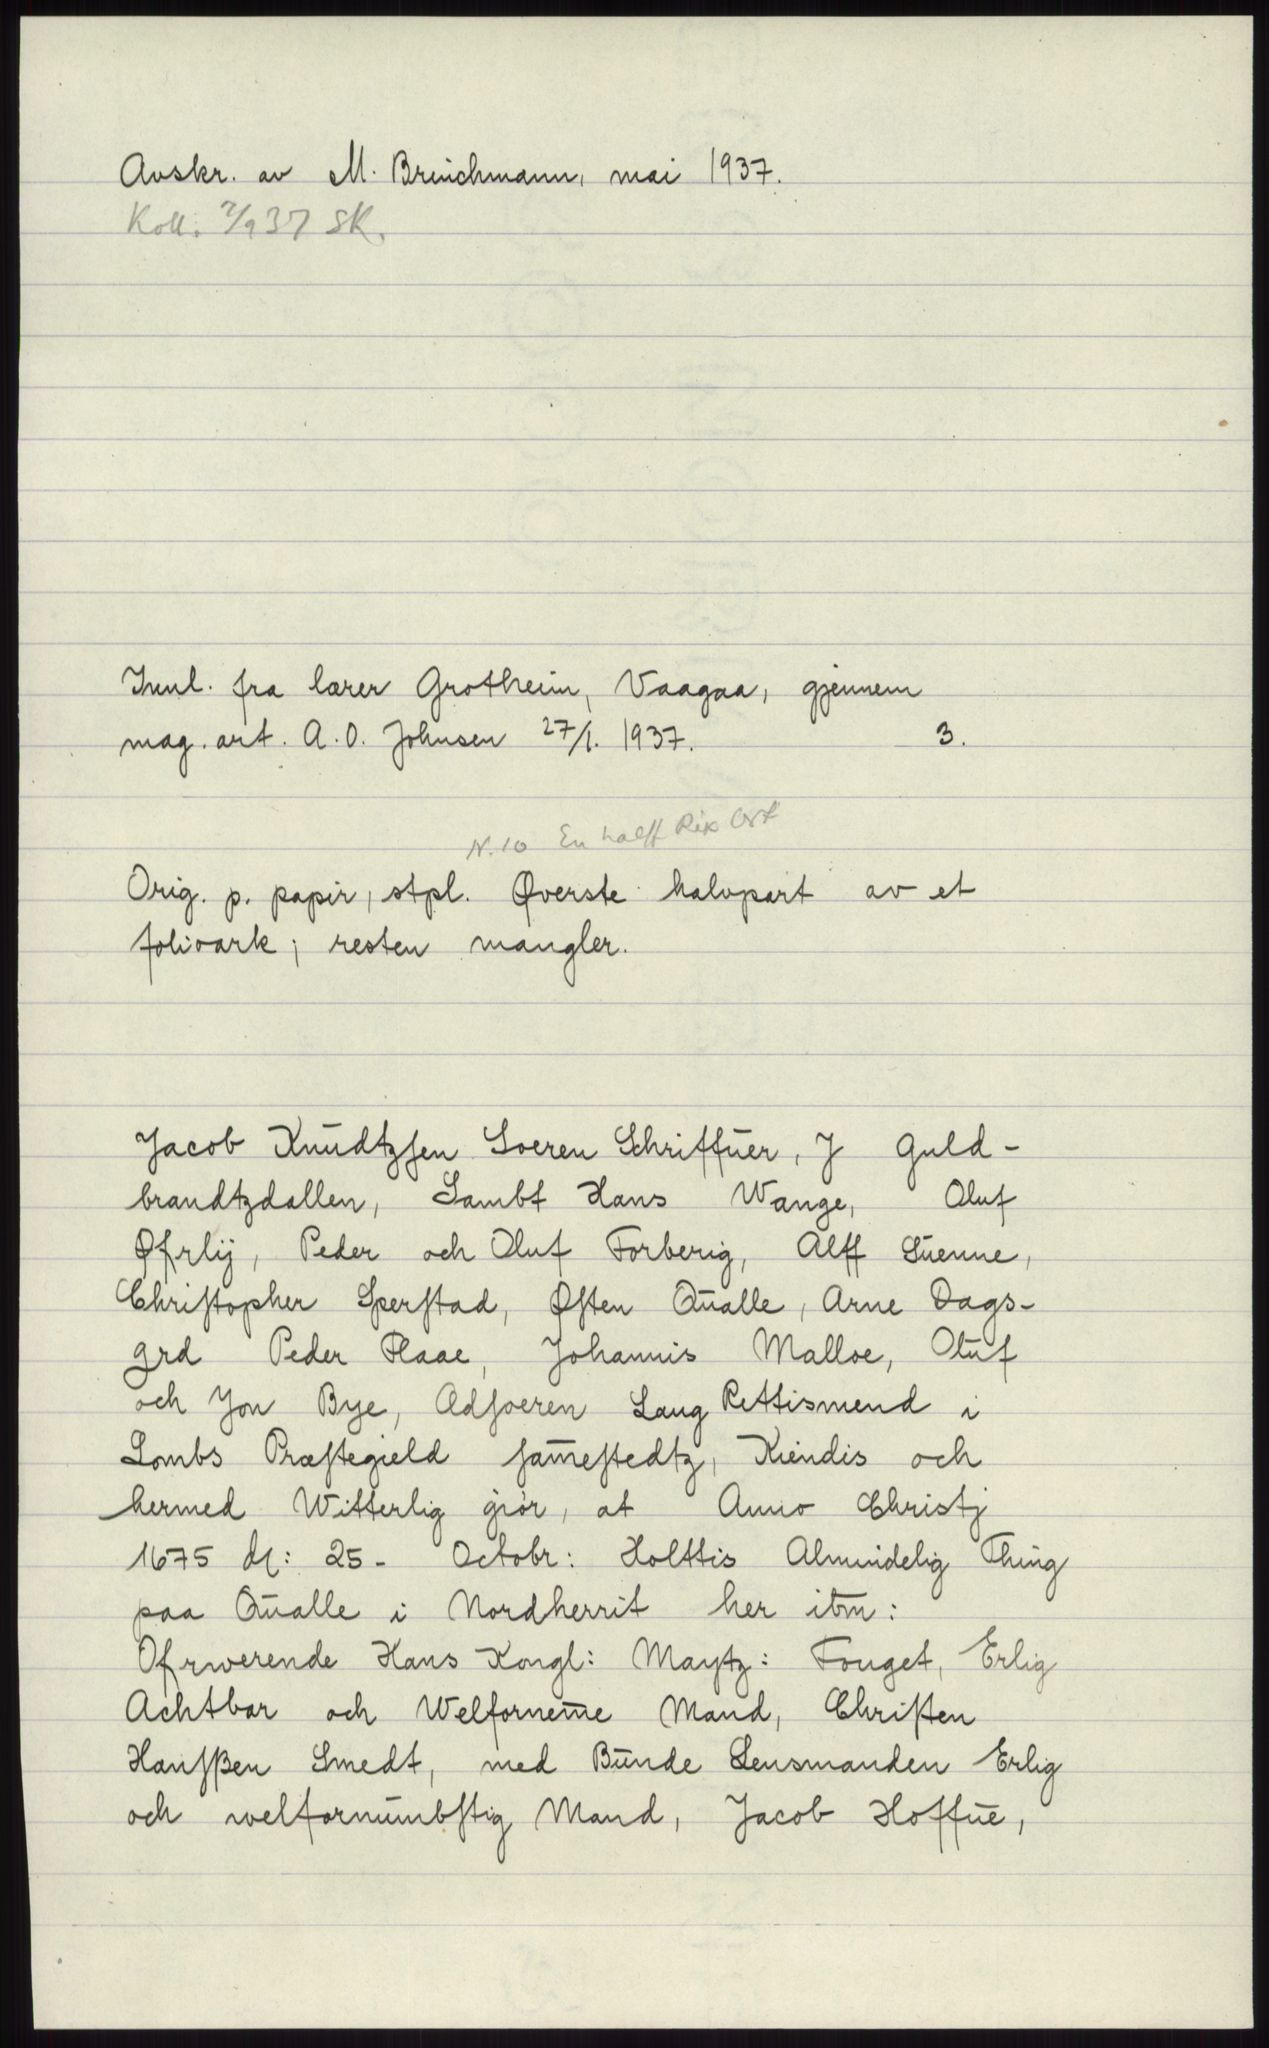 Avskr. av M. Brinchmann, mai 1937.
Koll. 2/9 37 SK.
Innl. fra lærer Grotheim, Vaagaa, gjennem
mag. art. A. O. Johnsen 27/1. 1937. 3.
N. 10 En halff Rix Ort
Orig. p. papir, stpl. Øverste halvpart av et
folioark; resten mangler.
Jacob Knudtzsen Soeren Schriffuer, J Guld-
brandtzdallen, Sambt Hans Wange, Oluf
Øfrlij, Peder och Oluf Forberig, Alff Suenne,
Christopher Sperstad, Østen Qualle, Arne Dags-
grd Peder Haae, Johannis Malloe, Oluf
och Jon Bye, Adsoeren Laug Rettismend i
Lombs Præstegield sam̅estedtz, Kiendis och
hermed Witterlig giør, at Anno Christj
1675 dſ: 25- Octobr: Holttis Almindelig Thing
paa Qualle i Nordherrit her ibm:
Ofrwerende Hans Kongl: Maytz: Fouget, Erlig
Achtbar och Welfornem̅e Mand, Christen
Hansßen Smedt, med Bunde Lensmanden Erlig
och welfornumbstig Mand, Jacob Hoffue,